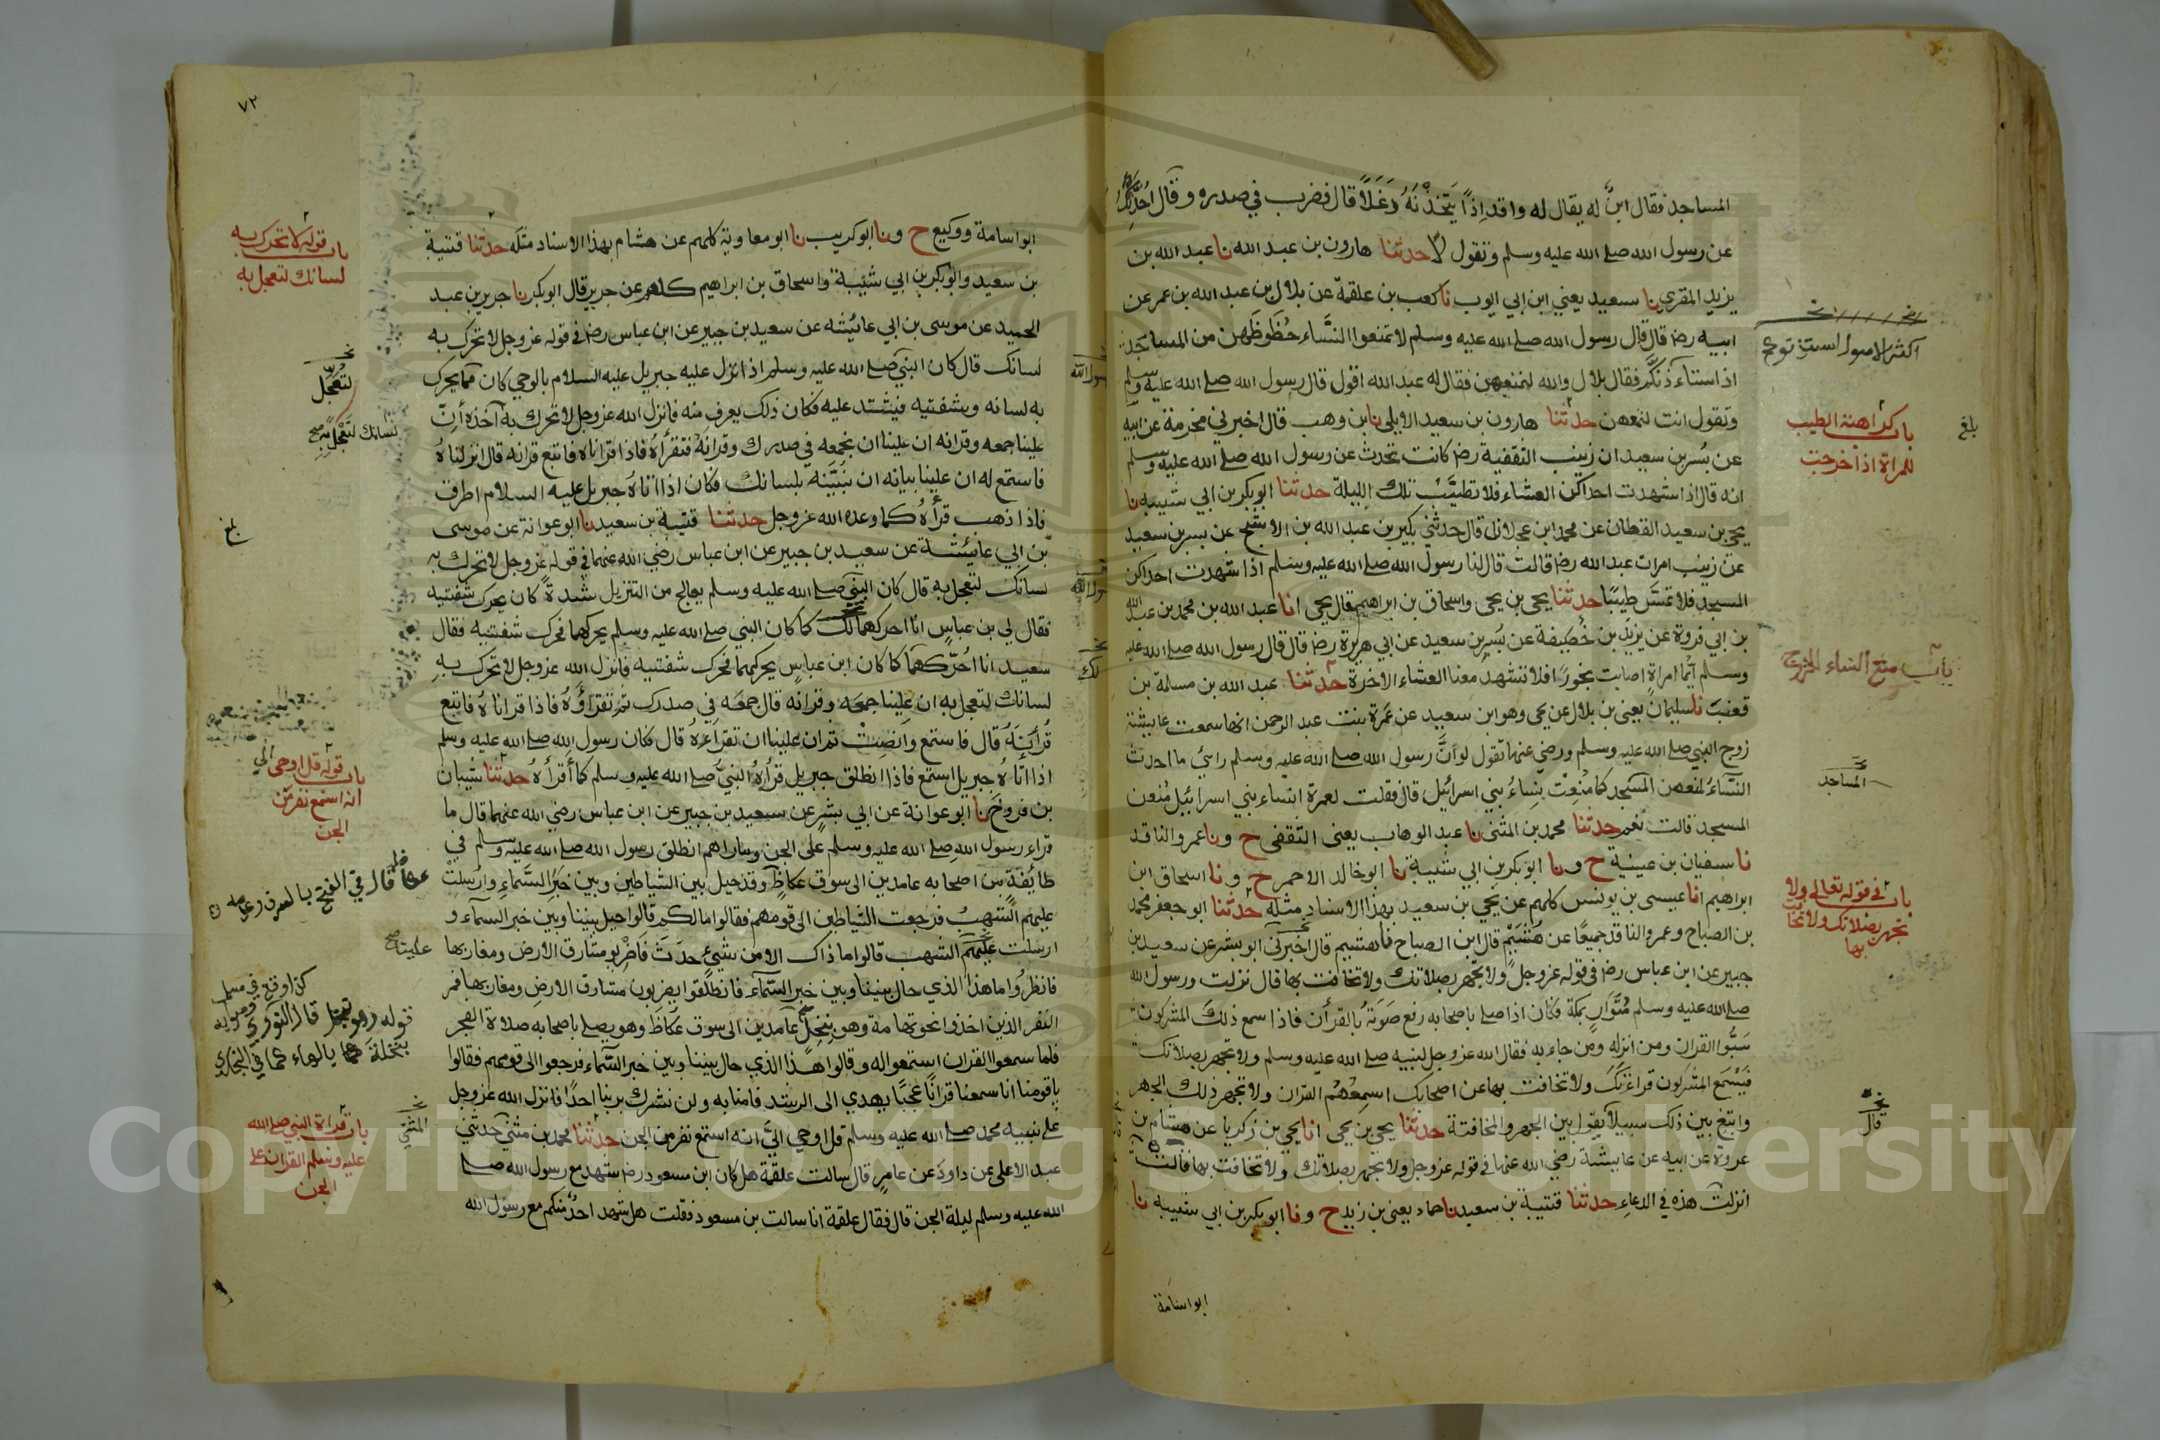 المساجد فقال ابن له يقال له واقد اذًا يتخذنه دغلاً قال فضرب في صدره وقال احدثك
عن رسول الله صلى الله عليه وسلم وتقول لا حدثنا هارون بن عبد الله نا عبد الله بن
يزيد المقري نا سعيد يعني ابن ابي ايوب نا كعب بن علقمة عن بلال بن عبد الله بن عمر عن
ابيه رضـ قال قال رسول الله صلى الله عليه وسلم لا تمنعوا النساء حظوظهن من المساجد
اذا استأذنكم فقال بلال والله لنمنعهن فقال له عبد الله اقول قال رسول الله صلى الله عليه وسلم
وتقول انت لنمنعهن حدثنا هارون بن سعيد الايلي نا ابن وهب قال اخبرني مخرمة عن ابيه
عن بسر بن سعيد ان زينب الثقفية رضـ كانت تحدث عن رسول الله صلى الله عليه وسلم
انه قال اذا شهدت احداكن العشاء فلا تطيب تلك الليلة حدثنا ابو بكر بن ابي شيبة نا
يحيى بن سعيد القطان عن محمد ابن عجلان قال حدثني بكير بن عبد الله بن الاشج عن بسر بن سعيد
عن زينب امراة عبد الله رضـ قالت قال لنا رسول الله صلى الله عليه وسلم اذا شهدت احداكن
المسجد فلا تمس طيبًا حدثنا يحيى بن يحيى واسحاق بن ابراهيم قال يحيى انا عبد الله بن محمد بن عبد الله
بن ابي فروة عن يزيد بن خصيفة عن بسر بن سعيد عن ابي هريرة رضـ قال قال رسول الله صلى الله عليه
وسلم ايما امراة اصابت بخورًا فلا تشهد معنا العشاء الاخرة حدثنا عبد الله بن مسلمة بن
قعنب نا سليمان يعني بن بلال عن يحيى وهو ابن سعيد عن عمرة بنت عبد الرحمن انها سمعت عايشة
زوج النبي صلى الله عليه وسلم ورضي عنها تقول لو ان رسول الله صلى الله عليه وسلم راى ما احدث
النساء لمنعهن المسجد كما منعت نساء بني اسرائيل قال فقلت لعمرة انساء بني اسرائيل منعن
المسجد قالت نعم حدثنا محمد بن المثنى نا عبد الوهاب يعني الثقفي ح ونا عمرو الناقد
نا سفيان بن عيينة ح ونا ابو بكر بن ابي شيبة نا ابو خالد الاحمر ح ونا اسحاق ابن
ابراهيم انا عيسى بن يونس كلهم عن يحيى بن سعيد بهذا الاسناد مثله حدثنا ابو جعفر محمد
بن الصباح وعمرو الناقد جميعًا عن هشيم قال ابن الصباح نا هشيم قال اخبرني ابو بشر عن سعيد بن
جبير عن ابن عباس رضـ في قوله عز وجل ولا تجهر بصلاتك ولا تخافت بها قال نزلت ورسول الله
صلى الله عليه وسلم متوار بمكة فكان اذا صلى باصحابه رفع صوته بالقرأن فاذا سمع ذلك المشركون
سبوا القران ومن انزله ومن جاء به فقال الله عز وجل لنبيه صلى الله عليه وسلم ولا تجهر بصلاتك
فيسمع المشركون قراءتك ولا تخافت بها عن اصحابك اسمعهم القران ولا تجهر ذلك الجهر
وابتغ بين ذلك سبيلا يقول بين الجهر والمخافتة حدثنا يحيى بن يحيى انا يحيى بن زكريا عن هشام بن
عروة عن ابيه عن عايشة رضي الله عنها في قوله عز وجل ولا تجهر بصلاتك ولا تخافت بها قالت
انزلت هذه في الدعاء حدثنا قتيبة بن سعيد نا حماد يعني بن زيد ح ونا ابو بكر بن ابي شيبة نا
ابو اسامة
باب كراهية الطيب
للمراة اذا خرجت
بلغ
باب منع النساء الخروج
المساجد
باب في قوله تعالى ولا
تجهر بصلاتك ولا تخافت
بها
قال
٧٢
ابو اسامة ووكيع ح ونا ابو كريب نا ابو معاوية كلهم عن هشام بهذا الاسناد مثله حدثنا قتيبة
بن سعيد وابو بكر بن ابي شيبة واسحاق بن ابراهيم كلهم عن جرير قال ابو بكر نا جرير بن عبد
الحميد عن موسى بن ابي عائشة عن سعيد بن جبير عن ابن عباس رضـ في قوله عز وجل لا تحرك به
لسانك قال كان النبي صلى الله عليه وسلم اذا نزل عليه جبريل عليه السلام بالوحي كان مما يحرك
به لسانه وشفتيه فيشتد عليه فكان ذلك يعرف منه فانزل الله عز وجل لا تحرك به اخذه ان
علينا جمعه وقرانه ان علينا ان نجمعه في صدرك وقرانه فتقرأه فاذا قراناه فاتبع قرانه قال انزلناه
فاستمع له ان علينا بيانه ان نبينه بلسانك فكان اذا اتاه جبريل عليه السلام اطرق
فاذا ذهب قرأه كما وعده الله عز وجل حدثنا قتيبة بن سعيد نا ابو عوانة عن موسى
بن ابي عائشة عن سعيد بن جبير عن ابن عباس رضي الله عنهما في قوله عز وجل لا تحرك به
لسانك لتعجل به قال كان النبي صلى الله عليه وسلم يعالج من التنزيل شدة كان يحرك شفتيه
فقال لي بن عباس انا احركهما لك كما كان النبي صلى الله عليه وسلم يحركهما فحرك شفتيه فقال
سعيد انا احركهما كما كان ابن عباس يحركهما فحرك شفتيه فانزل الله عز وجل لا تحرك به
لسانك لتعجل به ان علينا جمعه وقرانه قال جمعه في صدرك ثم تقرؤه فاذا قراناه فاتبع
قرأنه قال فاستمع وانصت ثم ان علينا ان تقرأه قال فكان رسول الله صلى الله عليه وسلم
اذا اتاه جبريل استمع فاذا انطلق جبريل قرأه النبي صلى الله عليه وسلم كما أقرأه حدثنا شيبان
بن فروخ نا ابو عوانة عن ابي بشر عن سعيد بن جبير عن ابن عباس رضي الله عنهما قال ما
قراء رسول الله صلى الله عليه وسلم على الجن وما راهم انطلق رسول الله صلى الله عليه وسلم في
طائفة من اصحابه عامدين الى سوق عكاظ وقد حيل بين الشياطين وبين خبر السماء وارسلت
عليهم الشهب فرجعت الشياطين الى قومهم فقالوا ما لكم قالوا حيل بيننا وبين خبر السماء و
ارسلت عليهم الشهب قالوا ما ذاك الا من شيء حدث فاضربوا مشارق الارض ومغاربها
فانظروا ما هذا الذي حال بيننا وبين خبر السماء فانطلقوا يضربون مشارق الارض ومغاربها فمر
النفر الذين اخذوا نحو تهامة وهو بنخل عامدين الى سوق عكاظ وهو يصلي باصحابه صلاة الفجر
فلما سمعوا القران استمعوا له وقالوا هذا الذي حال بيننا وبين خبر السماء فرجعوا الى قومهم فقالوا
ياقومنا انا سمعنا قرانًا عجبًا يهدي الى الرشد فامنا به ولن نشرك بربنا احدًا فانزل الله عز وجل
على نبيه محمد صلى الله عليه وسلم قل اوحي الي انه استمع نفر من الجن حدثنا محمد بن مثنى حدثني
عبد الاعلى عن داود عن عامر قال سالت علقمة هل كان ابن مسعود رضـ شهد مع رسول الله صلى
الله عليه وسلم ليلة الجن قال فقال علقمة انا سالت بن مسعود فقلت هل شهد احد منكم مع رسول الله
باب قوله لا تحرك به
لسانك لتعجل به
لتعجل
لسانك لتعجل به
بلغ
باب قوله قل اوحي الي
انه استمع نفر من
الجن
علينا
كذا وقع في مسلم
قوله وهو بنخل قال النووي وصوابه
بنخلة بالهاء كما في البخاري
المثنى
باب قراة النبي صلى الله
عليه وسلم القران على
الجن
Copyright © King Saud University